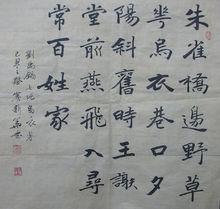 朱雀橋邊野草
華烏衣巷口夕
陽斜舊時王謝
堂前燕飛入尋
常百姓家
劉禹錫